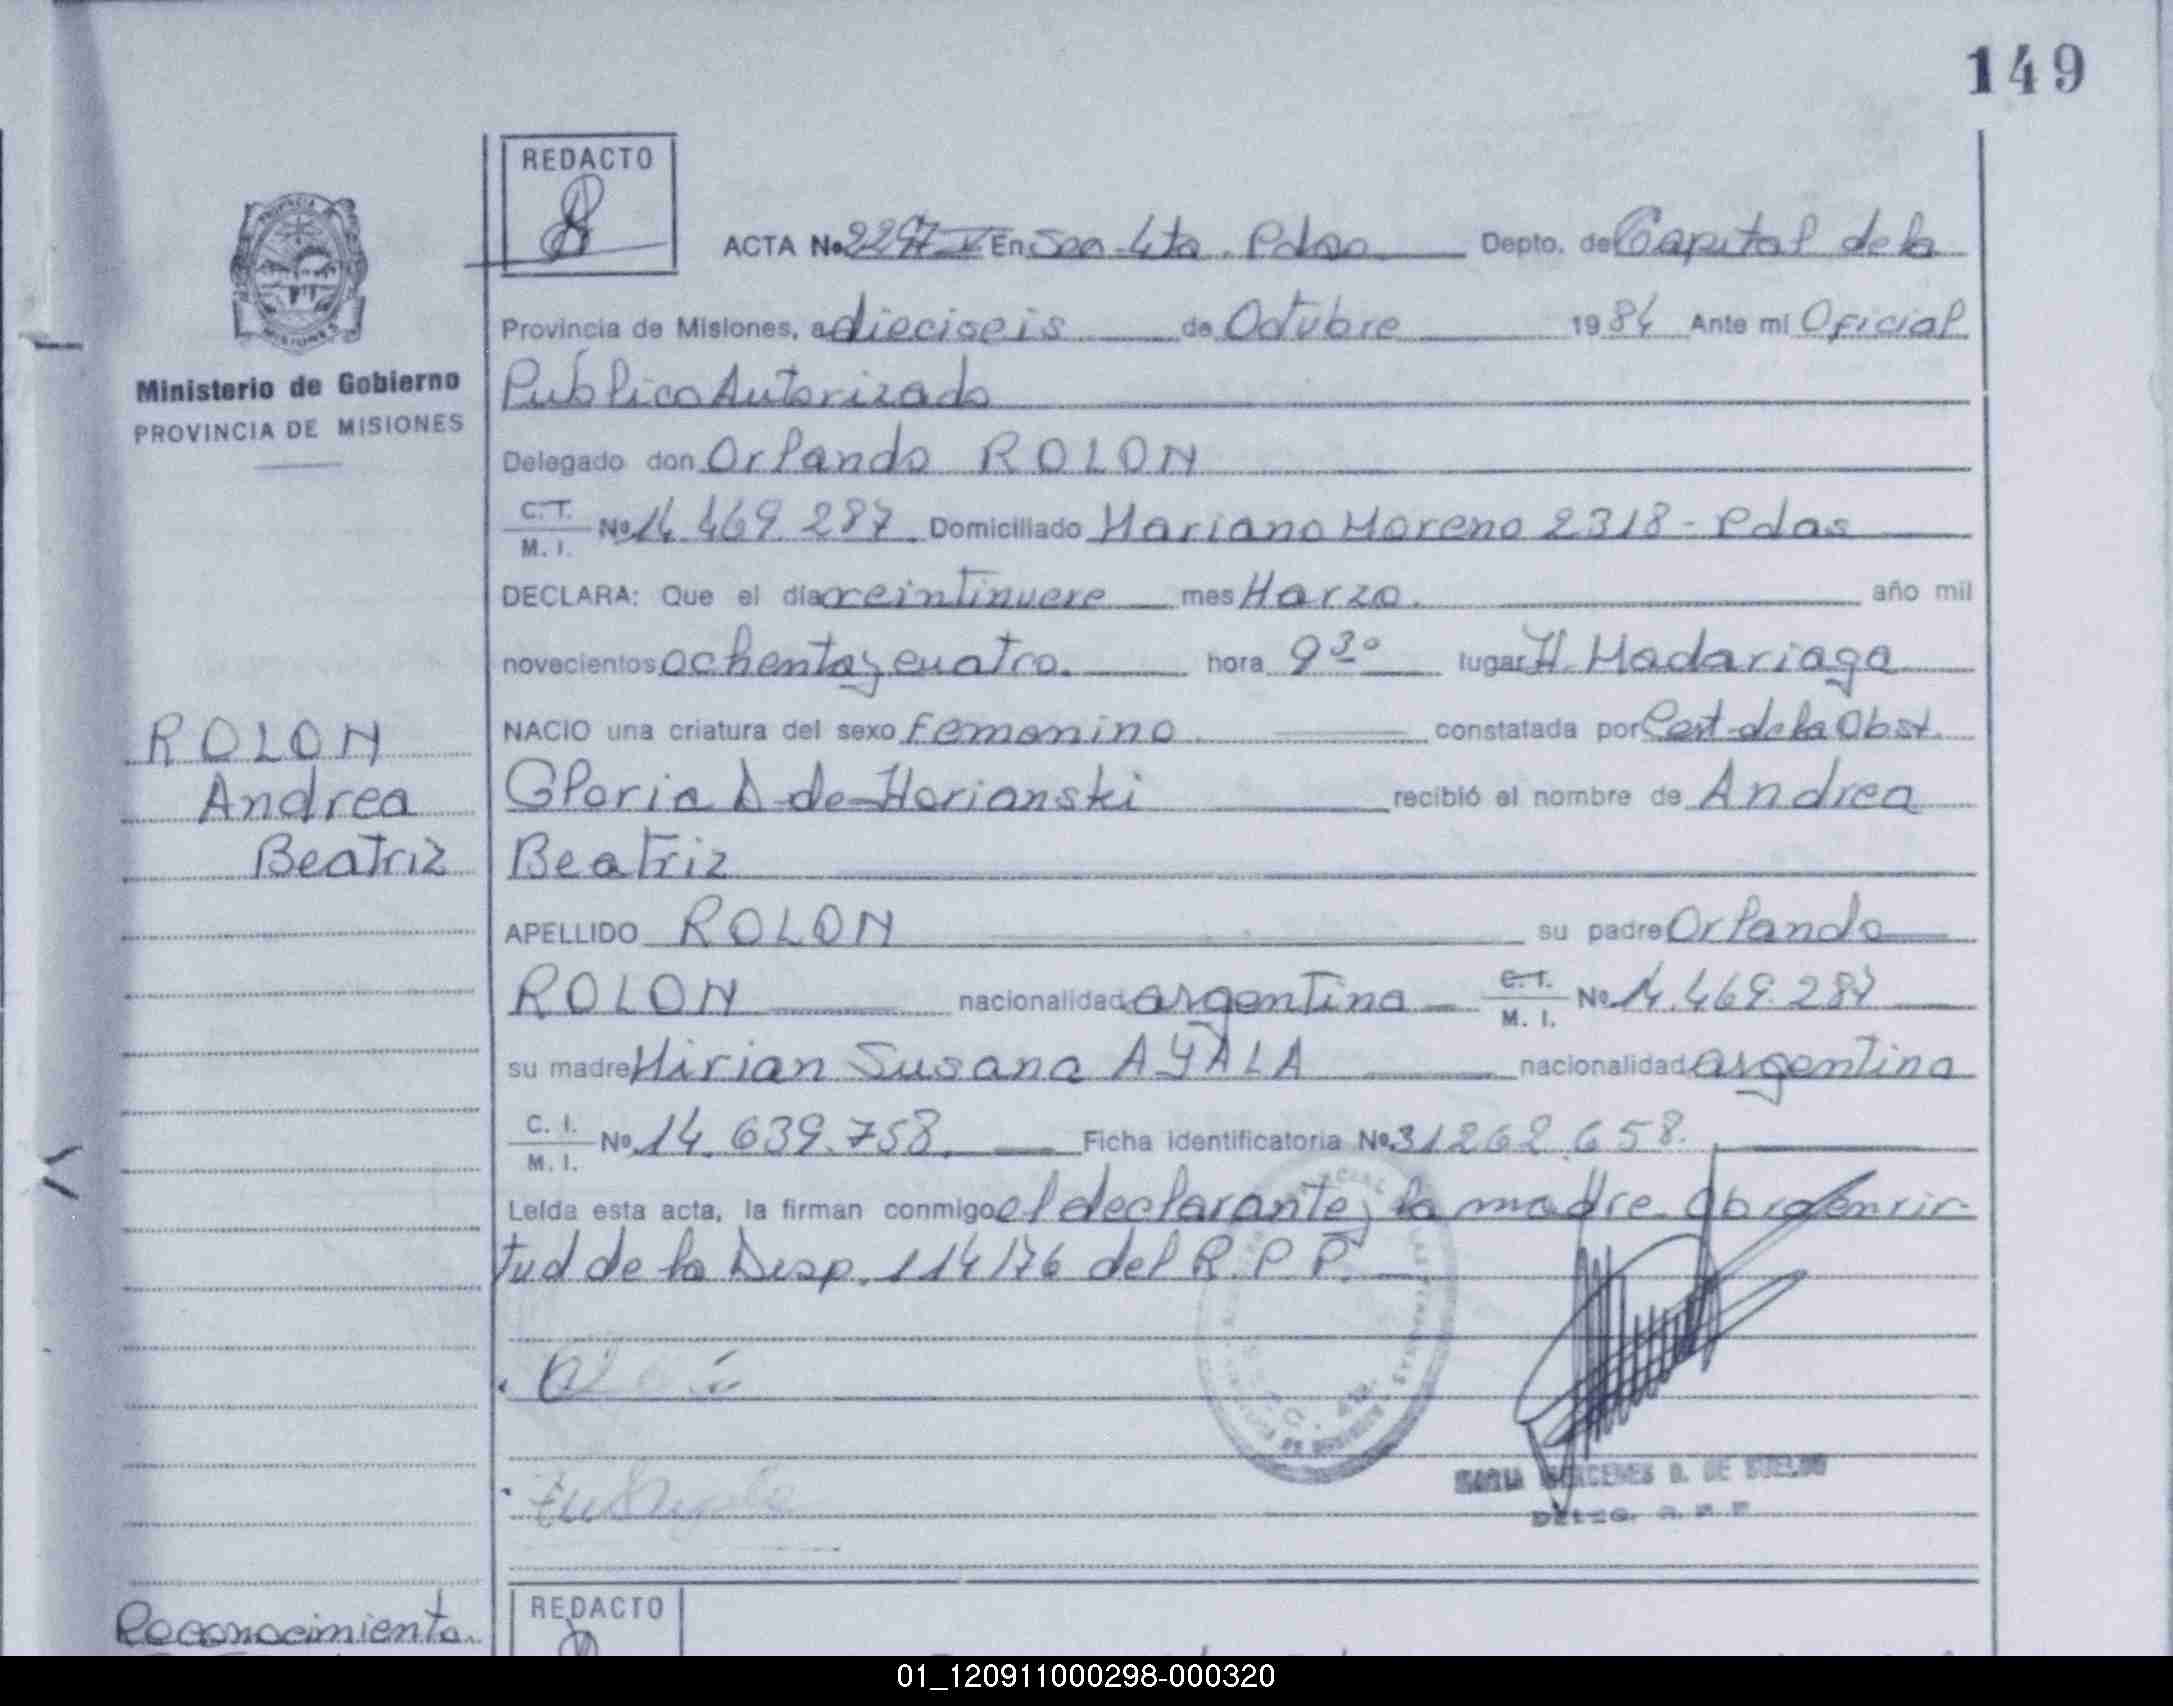 149
REDACTO
ACTA No 2297 V En Sec. 4ta. Pdas. Depto. de Capital de la
Provincia de Misiones, a dieciseis de Octubre 1984 Ante mi Oficial
Ministerio de Gobierno
PROVINCIA DE MISIONES
Publico Autorizado
Delegado don Orlando ROLON
C.T. M. I. No 14.469.287. Domiciliado Mariano Moreno 2318 - Pdas
DECLARA: Que el dia veintinueve mes Marzo. año mil
novecientos ochenta y cuatro. hora 9 30 lugar H. Madariaga
ROLON
NACIO una criatura del sexo Femenino. constatada por Cert. de la Obst.
Andrea
Gloria D. de Morianski recibió el nombre de Andrea
Beatriz
Beatriz
APELLIDO ROLON su padre Orlando
ROLON nacionalidad argentina C.I. M. I. No 14.469.287
su madre Mirian Susana AYALA nacionalidad argentina
C. I. M. I. No 14.639.758. Ficha identificatoria No 31262.658.
Leída esta acta, la firman conmigo el declarante y la madre. Obra en vir-
tud de la Disp. 114/76 del R.P.P.
DE SUELDO
DELEG. R. P. P.
REDACTO
Reconocimiento.
01_120911000298-000320